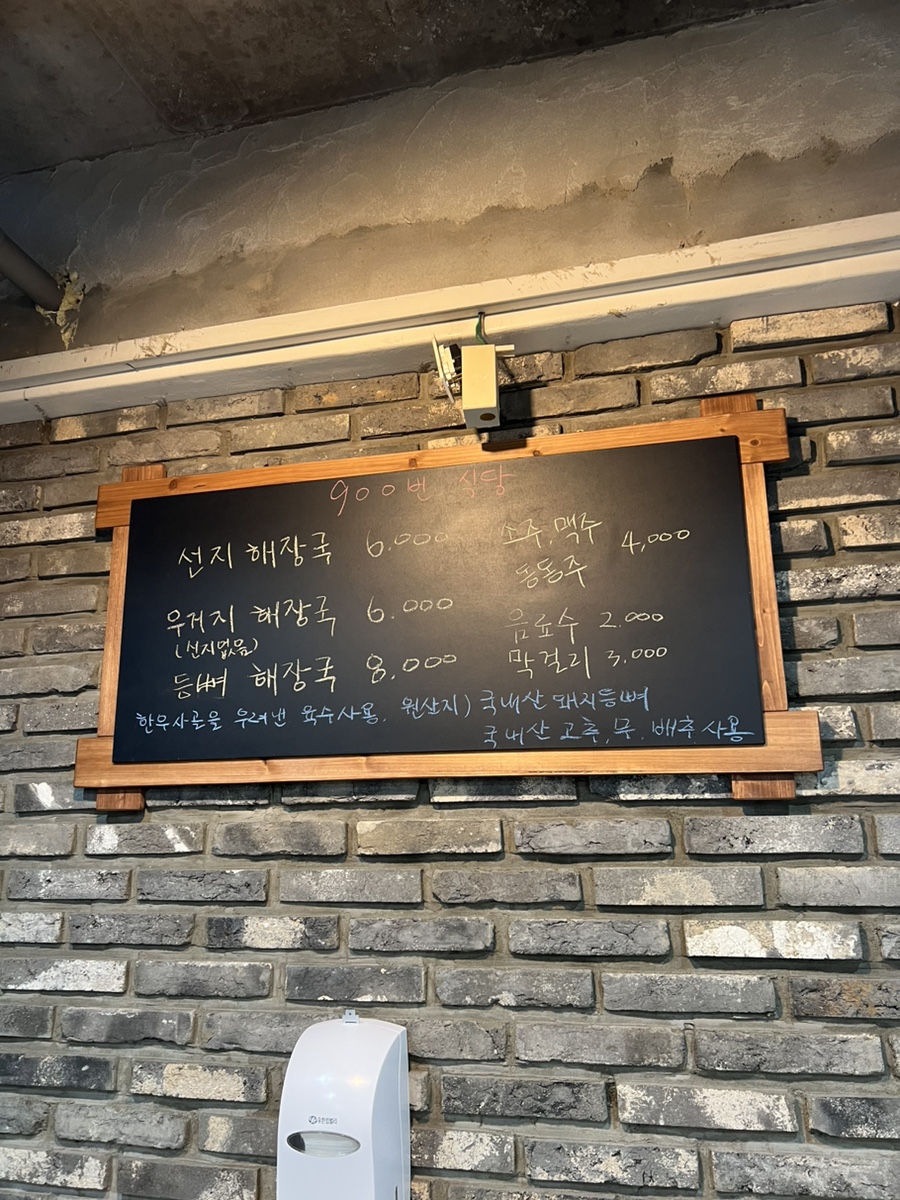 900번 식당
선지 해장국 6.000
우거지 해장국 6.000
(선지없음)
등뼈 해장국 8.000
소주, 맥주 4,000
동동주
음료수 2.000
막걸리 3.000
한우사골을 우려낸 육수사용. 원산지) 국내산 돼지등뼈
국내산 고추, 무. 배추 사용